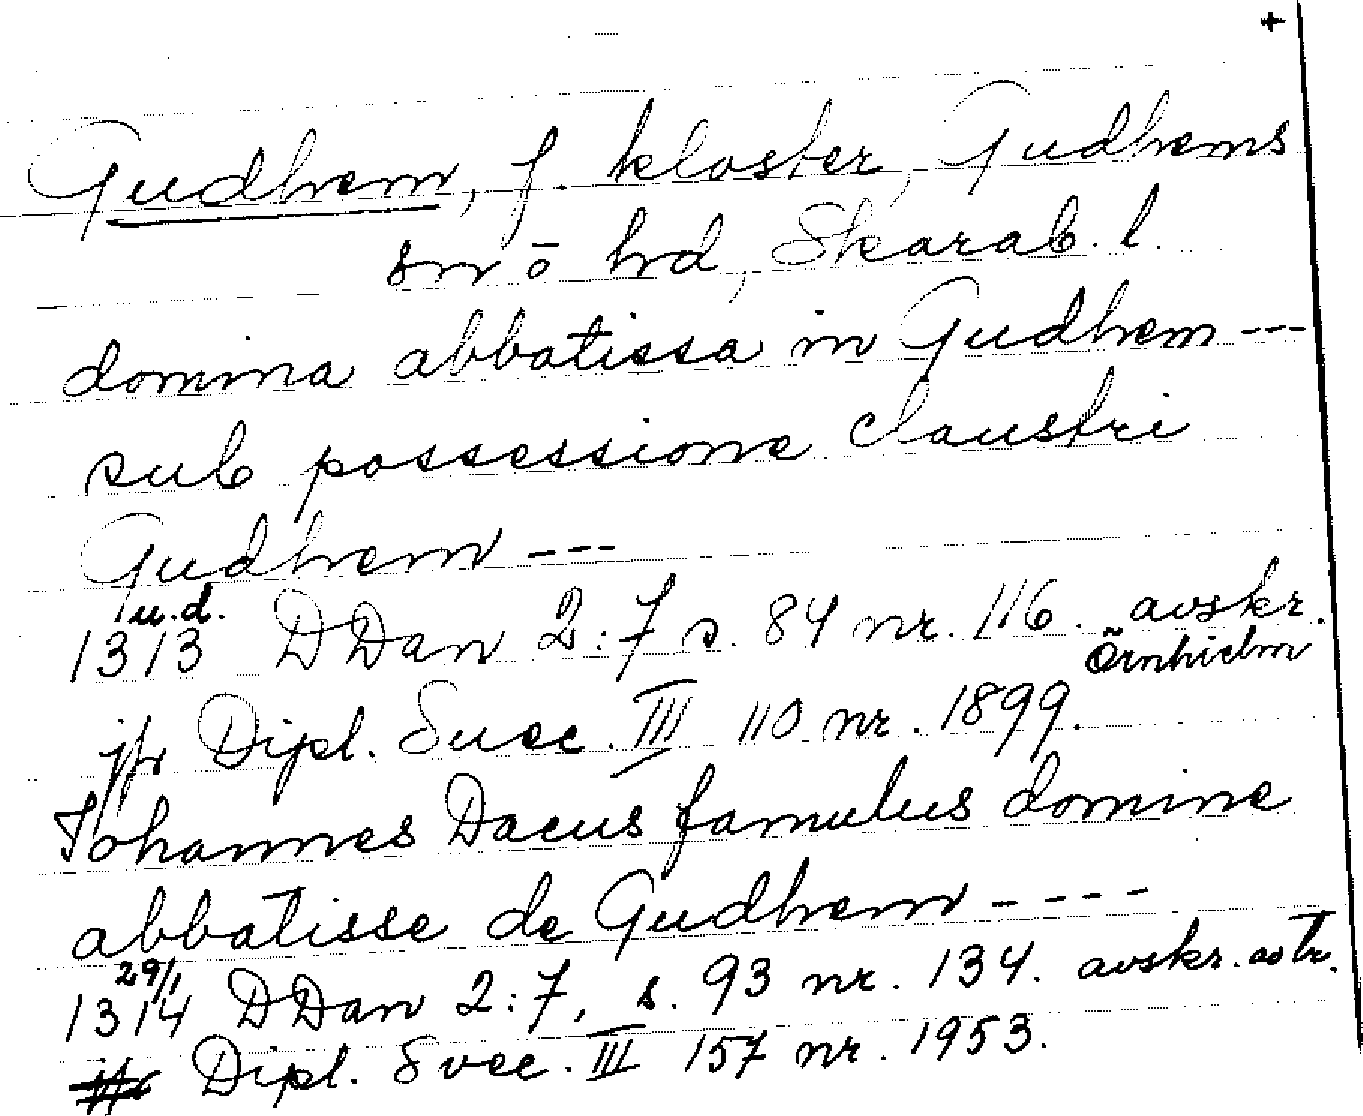 +
Gudhem, f. kloster, Gudhems
sn o hd, Skarab. l.
domina abbatissa in Gudhem ---
sub possessione claustri
Gudhem ---
u.d.
1313 DDan 2:7 s. 84 nr. 116. avskr.
Örnhielm
jfr Dipl. Suec. III 110 nr. 1899.
Johannes Dacus famulus domine
abbatisse de Gudhem ----
29/1
1314 DDan 2:7, s. 93 nr. 134. avskr. o tr.
jfr Dipl. Svec. III 157 nr. 1953.